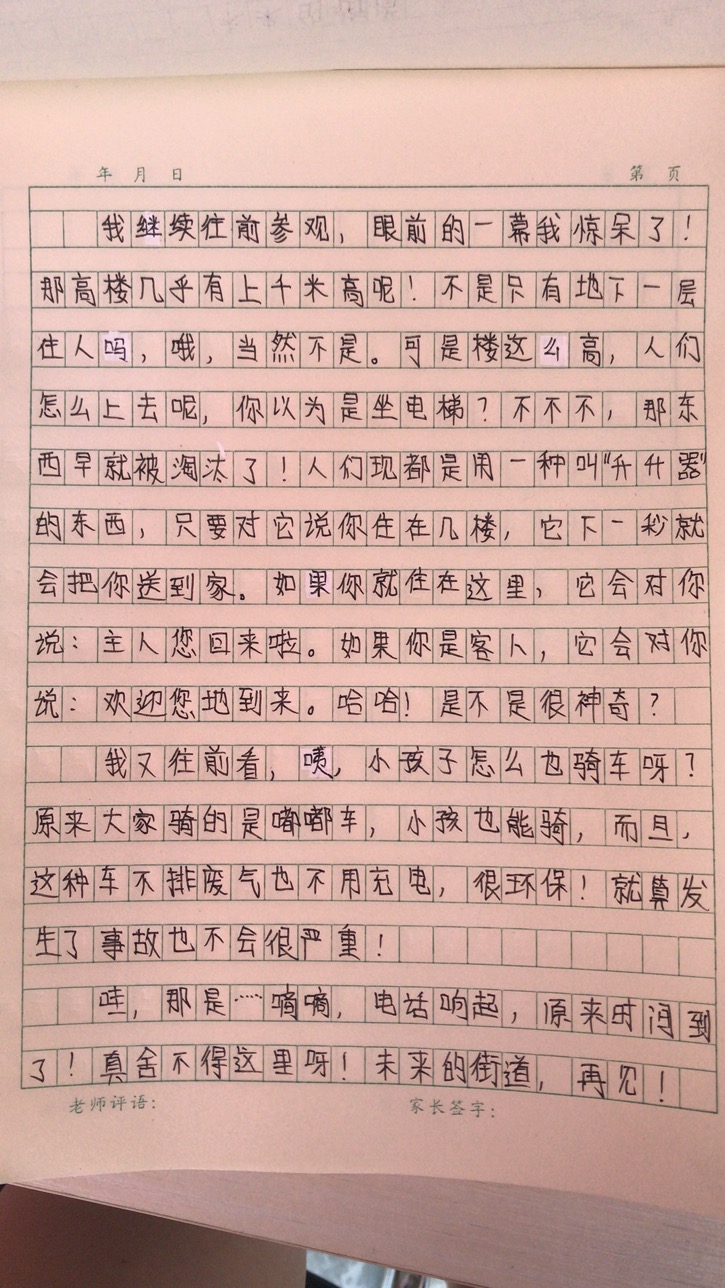 年 月 日 第 页
我继续往前参观，眼前的一幕我惊呆了！
那高楼几乎有上千米高呢！不是只有地下一层
住人吗，哦，当然不是。可是楼这么高，人们
怎么上去呢，你以为是坐电梯？不不不，那东
西早就被淘汰了！人们现都是用一种叫“升升器”
的东西，只要对它说你住在几楼，它下一秒就
会把你送到家。如果你就住在这里，它会对你
说：主人您回来啦。如果你是客人，它会对你
说：欢迎您地到来。哈哈！是不是很神奇？
我又往前看，咦，小孩子怎么也骑车呀？
原来大家骑的是嘟嘟车，小孩也能骑，而且，
这种车不排废气也不用充电，很环保！就算发
生了事故也不会很严重！
哇，那是……嘀嘀，电话响起，原来时间到
了！真舍不得这里呀！未来的街道，再见！
老师评语： 家长签字：